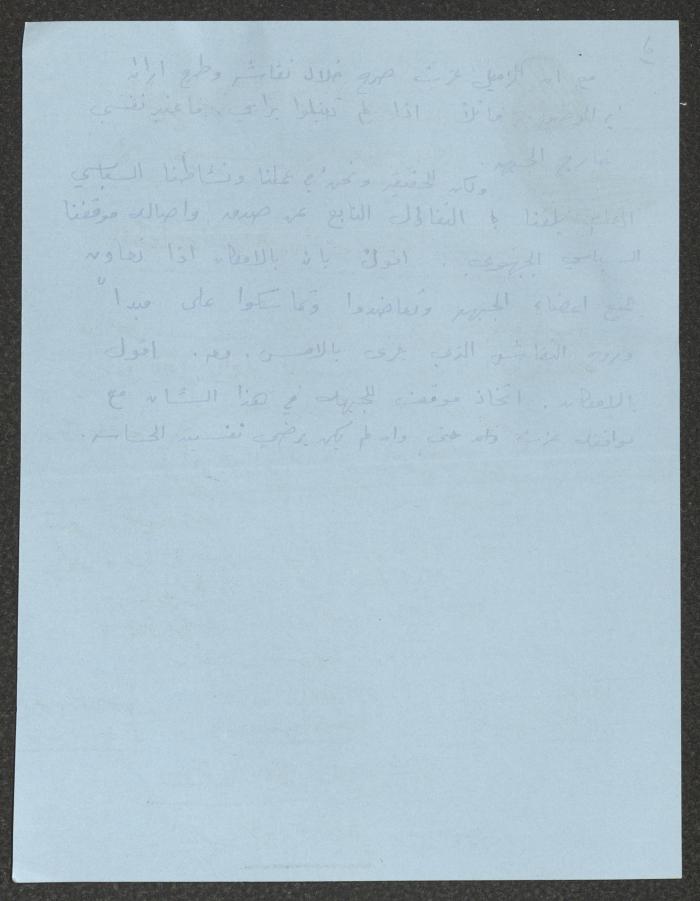 ٦
مع ان الزميل عزت صرح خلال نقاشه وطرح ارائه
قائلاً اذا لم تقبلوا برأيي فاعتبر نفسي
خارج الجبهه.
ولكن للحقيقه ونحن في عملنا ونشاطنا السياسي
التفاؤل النابع عن صدق واصالة موقفنا
السياسي الجبهوي. اقول بان بالامكان اذا تعاون
جميع اعضاء الجبهه وتعاضدوا وتماسكوا على مبدأ
وروح النقاش الذي جرى بالامس. اقول
بالامكان. اتخاذ موقف للجبهه في هذا الشأن مع
موافقة عزت وان لم يكن يرضي نفسيته الحساسه.